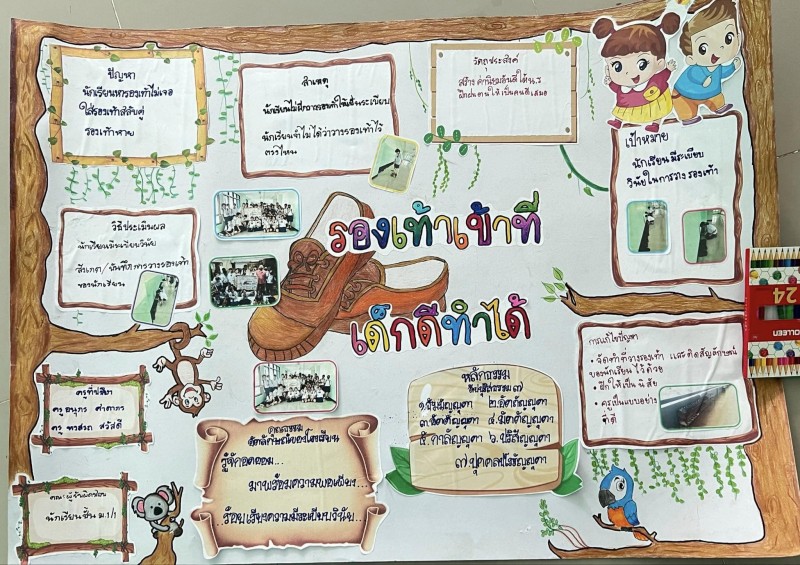 ปัญหา
นักเรียนหารองเท้าไม่เจอ
ใส่รองเท้าสลับคู่
รองเท้าหาย
สาเหตุ
นักเรียนไม่มีการวางรองเท้าให้เป็นระเบียบ
นักเรียนจำไม่ได้ว่าวางรองเท้าไว้
ตรงไหน
วัตถุประสงค์
สร้างค่านิยมอันดีให้ น.ร
ฝึกฝนตนให้เป็นคนดีเสมอ
เป้าหมาย
นักเรียนมีระเบียบ
วินัยในการวางรองเท้า
วิธีประเมินผล
นักเรียนมีระเบียบวินัย
สังเกต/บันทึกการวางรองเท้า
ของนักเรียน
รองเท้าเข้าที่
เด็กดีทำได้
การแก้ไขปัญหา
• จัดทำที่วางรองเท้า และติดสัญลักษณ์
ของนักเรียนไว้ด้วย
ฝึกให้เป็นนิสัย
• ครูเป็นแบบอย่าง
ที่ดี
ครูที่ปรึกษา
ครู
ครู สวัสดี
คุณธรรม
อัตลักษณ์ของโรงเรียน
รู้จักอดออม...
มาพร้อมความพอเพียง...
..ร้อยเรียงความมีระเบียบวินัย..
หลักธรรม
สัปปุริสธรรม ๗
๑.ธัมมัญญุตา ๒.อัตถัญญุตา
๓.อัตตัญญุตา ๔.มัตตัญญุตา
๕.กาลัญญุตา ๖.ปริสัญญุตา
๗.ปุคคลปโรปรัญญุตา
คณะผู้จัด
นักเรียนชั้น ม.1/1
24
COLLEEN